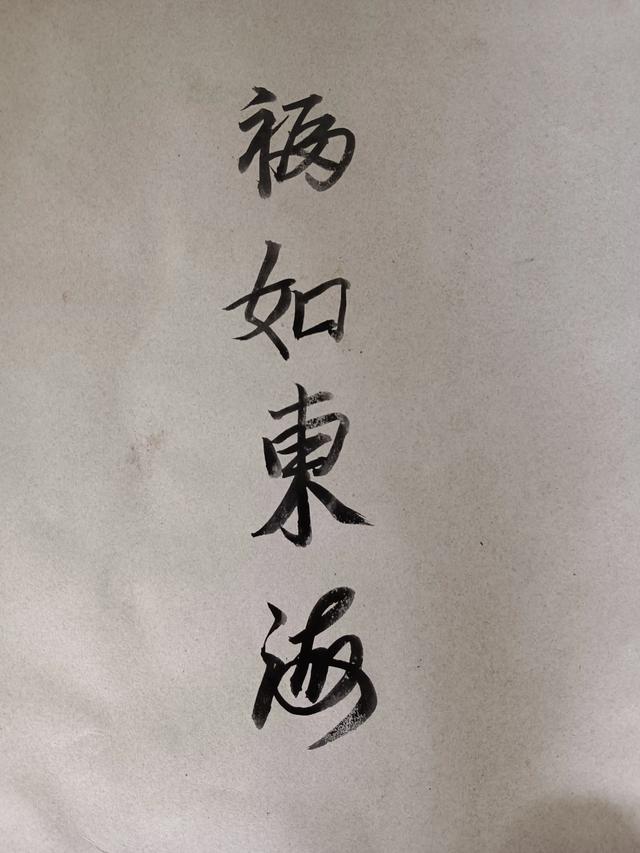 福如東海